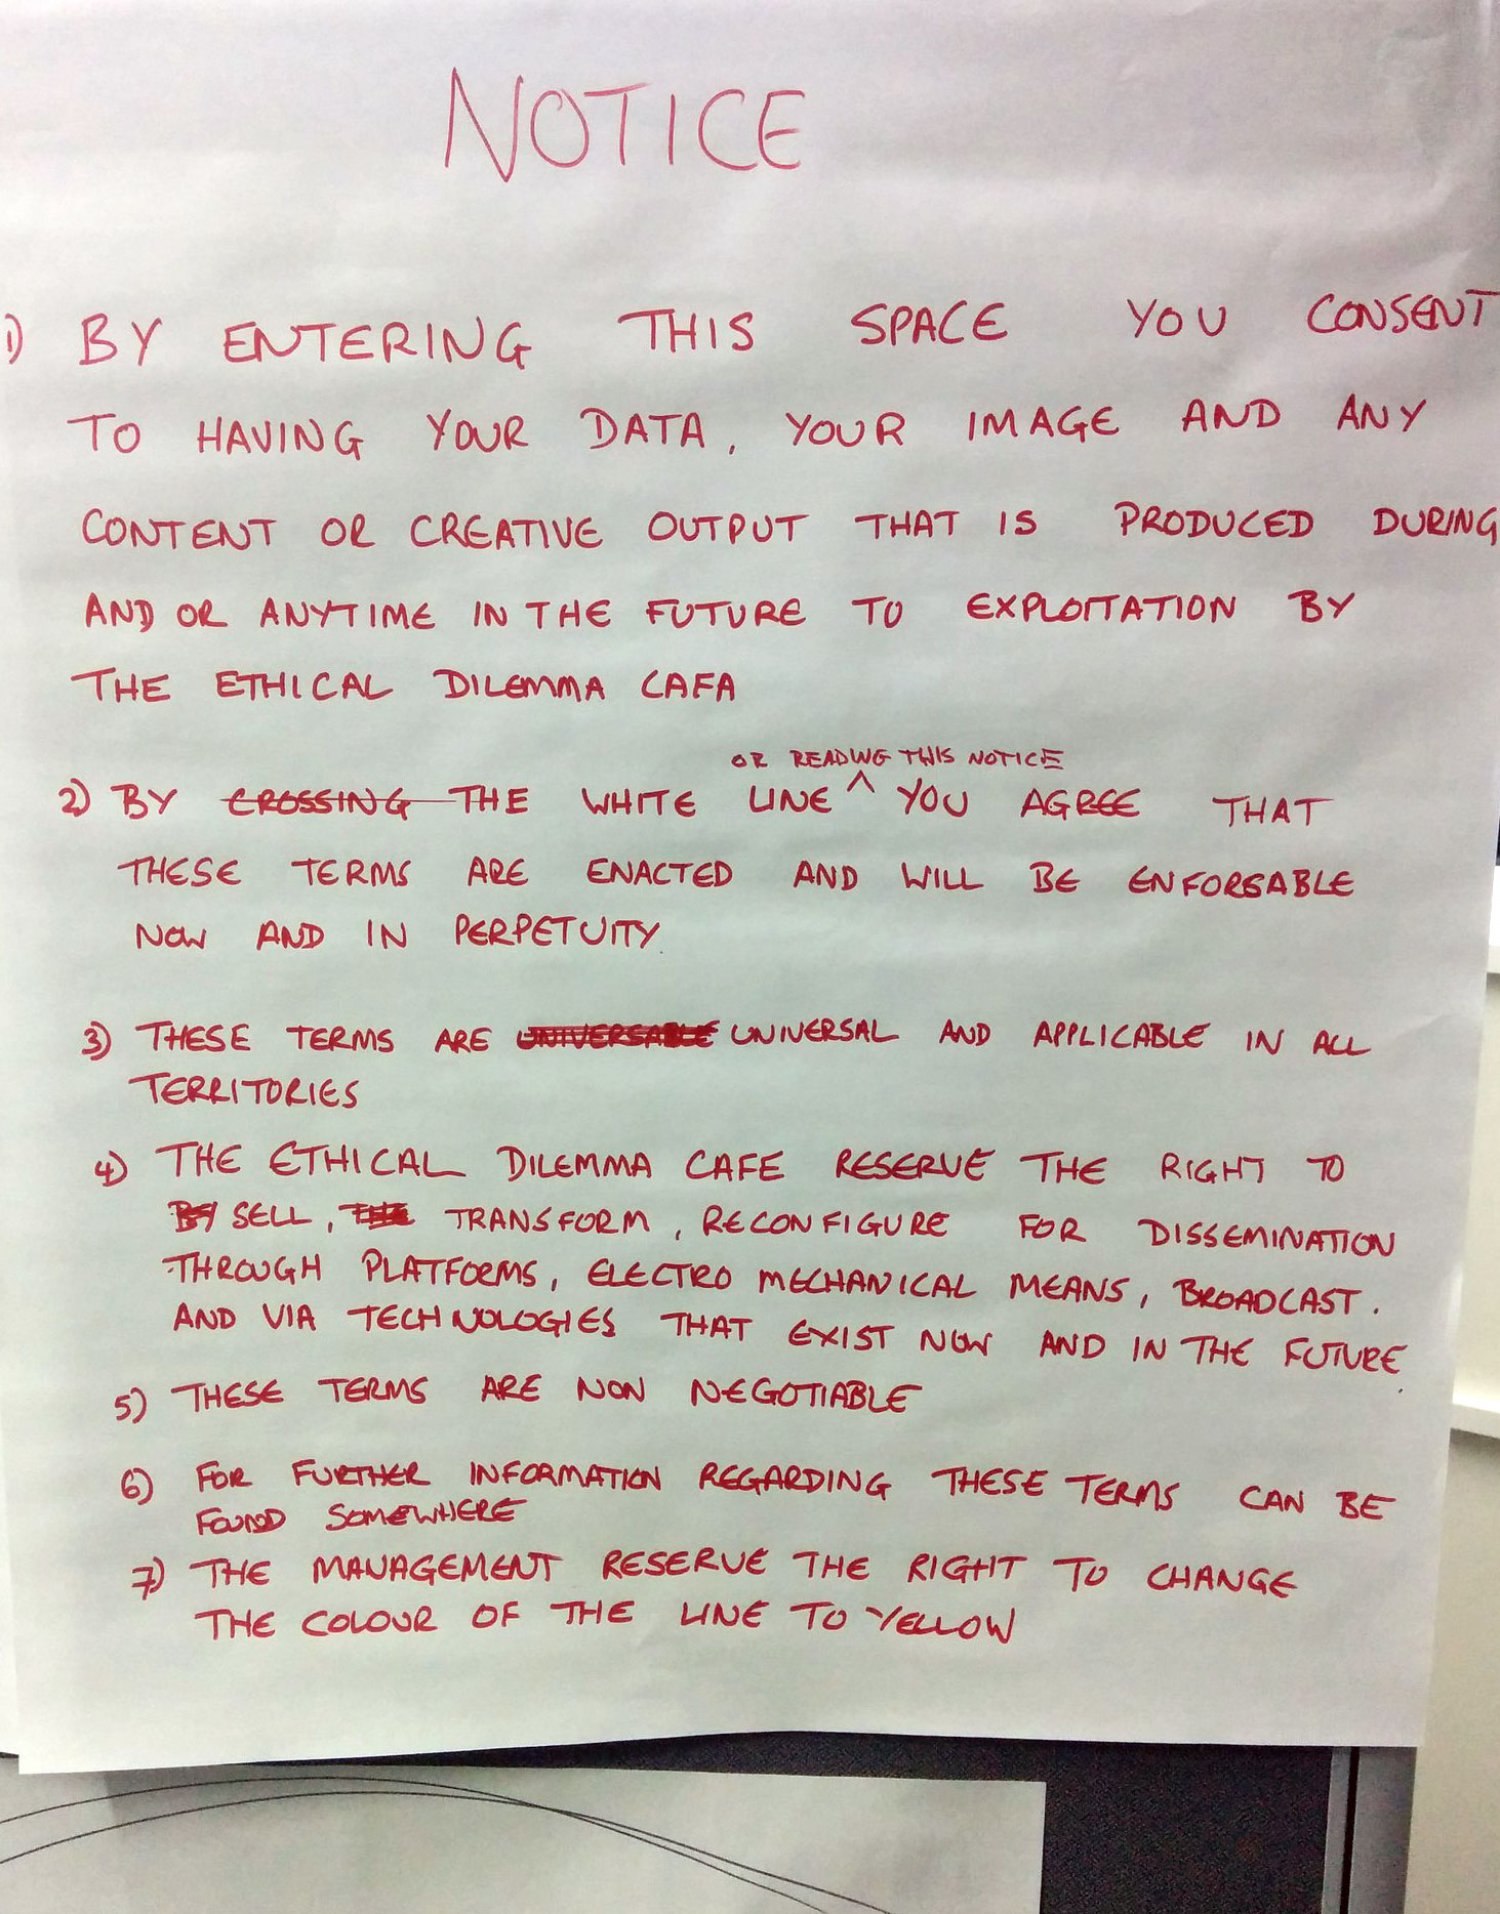 NOTICE
1) BY ENTERING THIS SPACE YOU CONSENT
TO HAVING YOUR DATA, YOUR IMAGE AND ANY
CONTENT OR CREATIVE OUTPUT THAT IS PRODUCED DURING
AND OR ANYTIME IN THE FUTURE TO EXPLOITATION BY
THE ETHICAL DILEMMA CAFA
OR READING THIS NOTICE
2) BY CROSSING THE WHITE LINE ^ YOU AGREE THAT
THESE TERMS ARE ENACTED AND WILL BE ENFORSABLE
NOW AND IN PERPETUITY.
3) THESE TERMS ARE UNIVERSABLE UNIVERSAL AND APPLICABLE IN ALL
TERRITORIES
4) THE ETHICAL DILEMMA CAFE RESERVE THE RIGHT TO
BY SELL, THE TRANSFORM, RECONFIGURE FOR DISSEMINATION
THROUGH PLATFORMS, ELECTRO MECHANICAL MEANS, BROADCAST.
AND VIA TECHNOLOGIES THAT EXIST NOW AND IN THE FUTURE.
5) THESE TERMS ARE NON NEGOTIABLE
6) FOR FURTHER INFORMATION REGARDING THESE TERMS CAN BE
FOUND SOMEWHERE
7) THE MANAGEMENT RESERVE THE RIGHT TO CHANGE
THE COLOUR OF THE LINE TO YELLOW